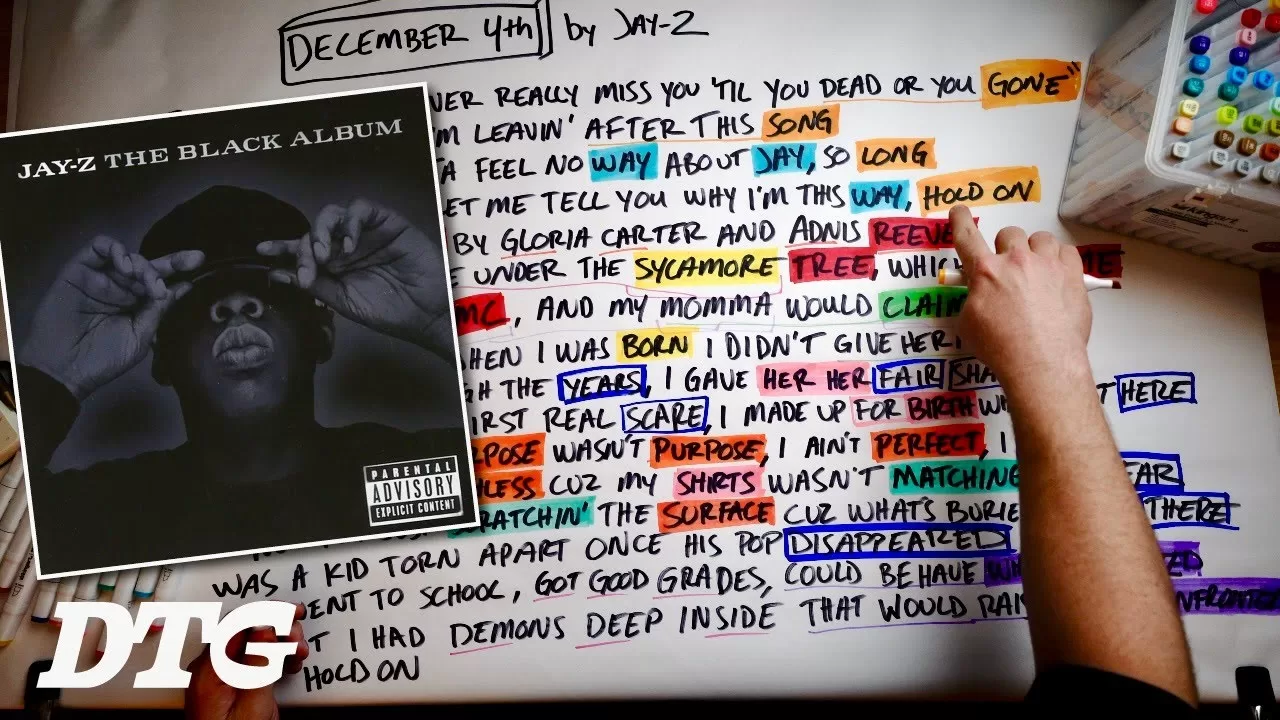 DECEMBER 4th by JAY-Z
REALLY MISS YOU 'TIL YOU DEAD OR YOU GONE"
LEAVIN' AFTER THIS SONG
FEEL NO WAY ABOUT JAY, SO LONG
ME TELL YOU WHY I'M THIS WAY, HOLD ON
BY GLORIA CARTER AND ADNIS
UNDER THE SYCAMORE TREE,
, AND MY MOMMA WOULD
I WAS BORN I DIDN'T GIVE HER
THE YEARS, I GAVE HER HER FAIR HERE
REAL SCARE, I MADE UP FOR BIRTH
WASN'T PURPOSE, I AIN'T PERFECT, I
CUZ MY SHIRTS WASN'T MATCHING
THE SURFACE CUZ WHAT'S THERE
WAS A KID TORN APART ONCE HIS POP DISAPPEARED
TO SCHOOL, GOT GOOD GRADES, COULD BEHAVE
I HAD DEMONS DEEP INSIDE THAT WOULD
HOLD ON
JAY-Z THE BLACK ALBUM
PARENTAL
ADVISORY
EXPLICIT CONTENT
DTG